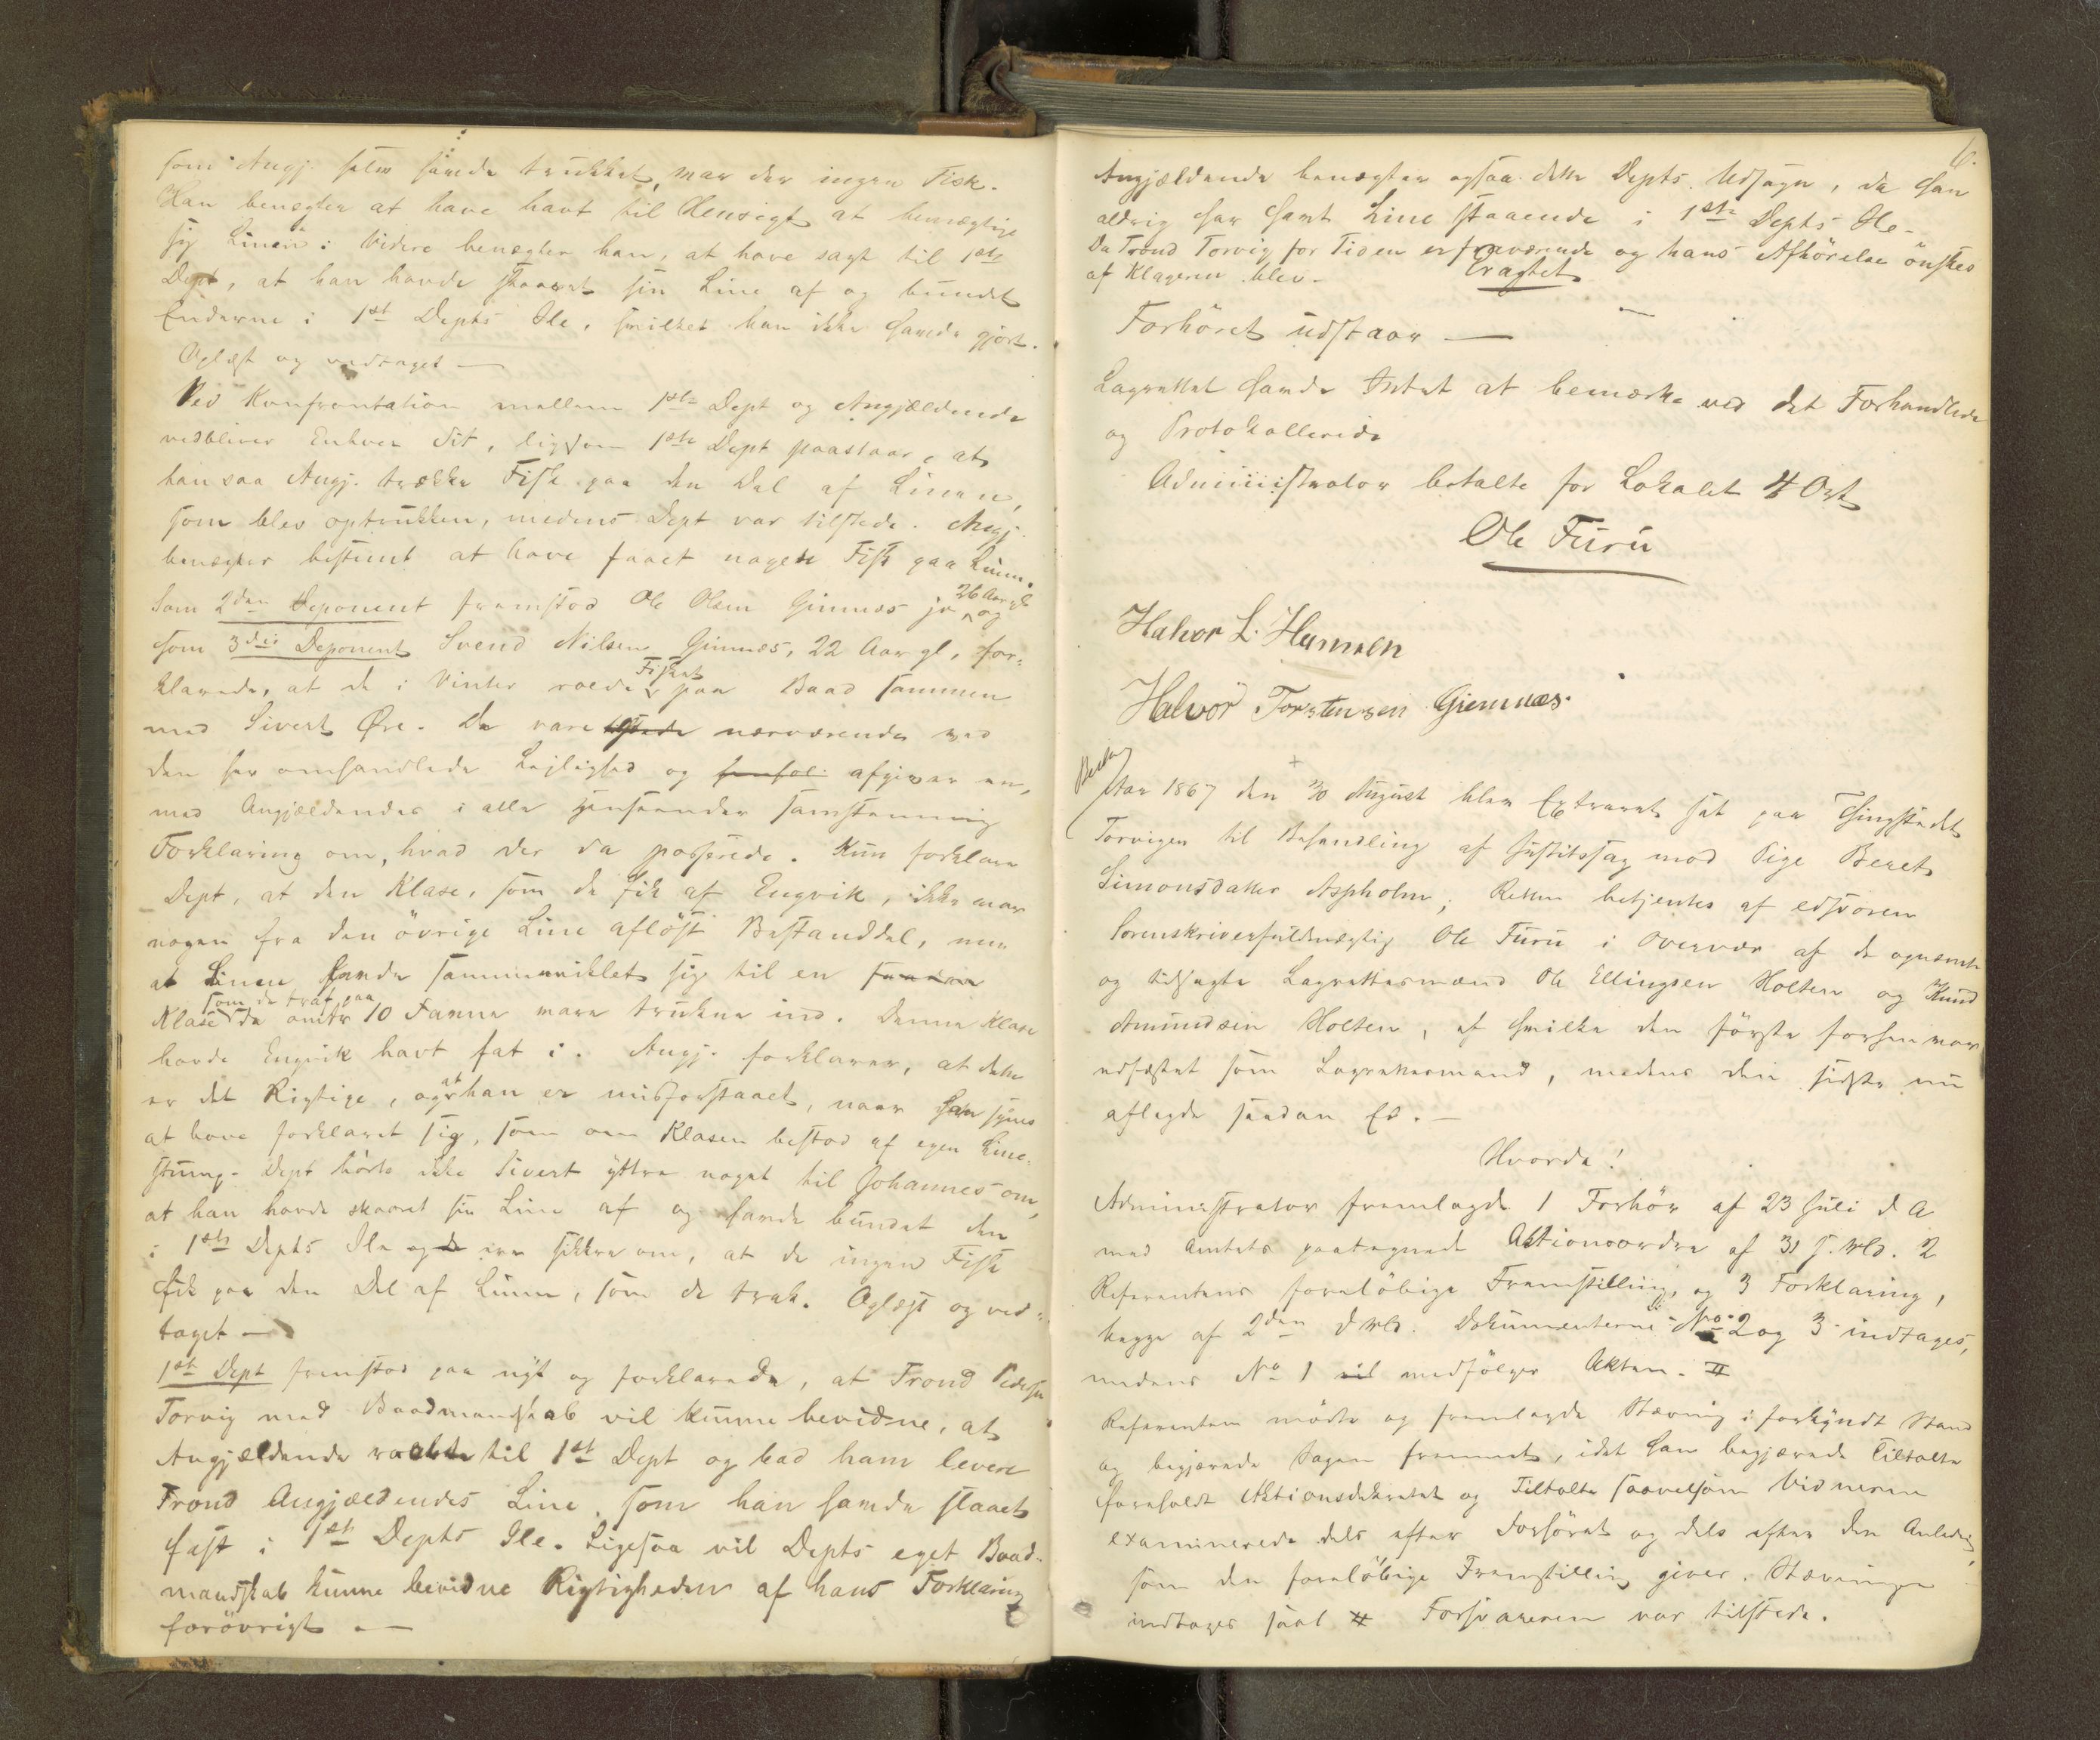 som Angj. selv havde trukket, var der ingen Fisk.
Han benegter at have havt til Hensigt at bemægtige
sig Linen: Videre benegter han, at have sagt til 1ste
Dept, at han havde skaaret sin Line af og bundet
Enderne i 1st Depts Ile, hvilket han ikke havde gjort.
Oplæst og vedtaget —
Ved Konfrontation mellem 1ste Dept og Angjældende
vedbliver Enhver Sit, ligesom 1ste Dept paastaar, at
han saa Angj. trække Fisk paa den Del af Linen,
som blev optrukken, medens Dept var tilstede. Angj.
benegter bestemt at have faaet nogen Fisk paa Linen.
Som 2den Deponent fremstod Ole Olsen Gimnæs jr 26 Aar gl og
som 3die Deponent Svend Nilsen Gimnæs, 22 Aar gl, for-
klarede, at de i Vinter roede Fiskeri paa Baad sammen
med Sivert Øre. De vare tilstede nærværende ved
den her omhandlede Lejlighed og afgiver en,
med Angjældendes i alle Henseender samstemmig
Forklaring om, hvad der da passerede. Kun forklarer
Dept, at den Klase, som de fik af Engvik, ikke var
nogen fra den øvrige Line afløst Bestanddel, men
at Linen havde sammenviklet sig til en saadan
Klase som de traf paa da omtr 10 Favne vare trukne ind. Denne Klase
havde Engvik havt fat i. Angj. forklarer, at dette
er det Rigtige, og at han er misforstaaet, naar han synes
at have forklaret sig, som om Klasen bestod af egen Line-
stump. Dept hørte ikke Sivert yttre noget til Johannes om,
at han havde skaaret sin Line af og havde bundet den
i 1ste Depts Ile og de ere sikkre om, at de ingen Fisk
fik paa den Del af Linen, som de trak. Oplæst og ved-
taget —
1st Dept fremstod paa nyt og forklarede, at Trond Pedersen
Torvig med Baadmandskab vil kunne bevidne, at
Angjældende roede til 1st Dept og bad ham levere
Trond Angjældendes Line, som han havde staaet
fast i 1ste Depts Ile. Ligesaa vil Depts eget Baad-
mandskab kunne bevidne Rigtigheden af hans Forklaring
forøvrigt. —
6.
Angjældende benegter ogsaa dette Depts Udsagn, da han
aldrig har havt Line staaende i 1ste Depts Ile —
Da Trond Torvig for Tiden er fraværende og hans Afhørelse ønskes
af Klageren blev — Eragtet
Forhøret udstaar —
Lagrettet havde Intet at bemærke ved det Forhandlede
og Protokollerede
Administrator betalte for Lokalet 4 Ort
Ole Furu
Halvor L. Hermsen
Halvor Torstensen Giemnæs.
Aar 1867 den 30 August blev Extraret sat paa Thingstedet
Torvigen til Behandling af Justitssag mod Pige Beret
Simonsdatter Aspholm; Retten betjentes af edsvoren
Sorenskriverfuldmægtig Ole Furu i Overvær af de opnævnte
og tilsagte Lagrettesmænd Ole Ellingsen Holten og Knud
Amundsen Holten, af hvilke den første forhen var
edfæstet som Lagrettesmand, medens den sidste nu
aflagde saadan Ed. —
Hvorda!
Administrator fremlagde 1 Forhør af 23 Juli d A
med Amtets paategnede Aktionsordre af 31 f. Md. 2
Referentens foreløbige Fremstilling, og 3 Forklaring,
begge af 2den d Md. Dokumenterne No 2 og 3 indtages,
medens No 1 vil medfølger Akten. #
Referenten mødte og fremlagde Stævning i forkyndt Stand
og begjærede Sagen fremmet, idet han begjærede Tiltalte
foreholdt Aktionsdekretet og Tiltalte saavelsom Vidnerne
examinerede dels efter Forhøret og dels efter den Anledning,
som den foreløbige Fremstilling giver. Stævningen
indtages saal. # Forsvareren var tilstede.